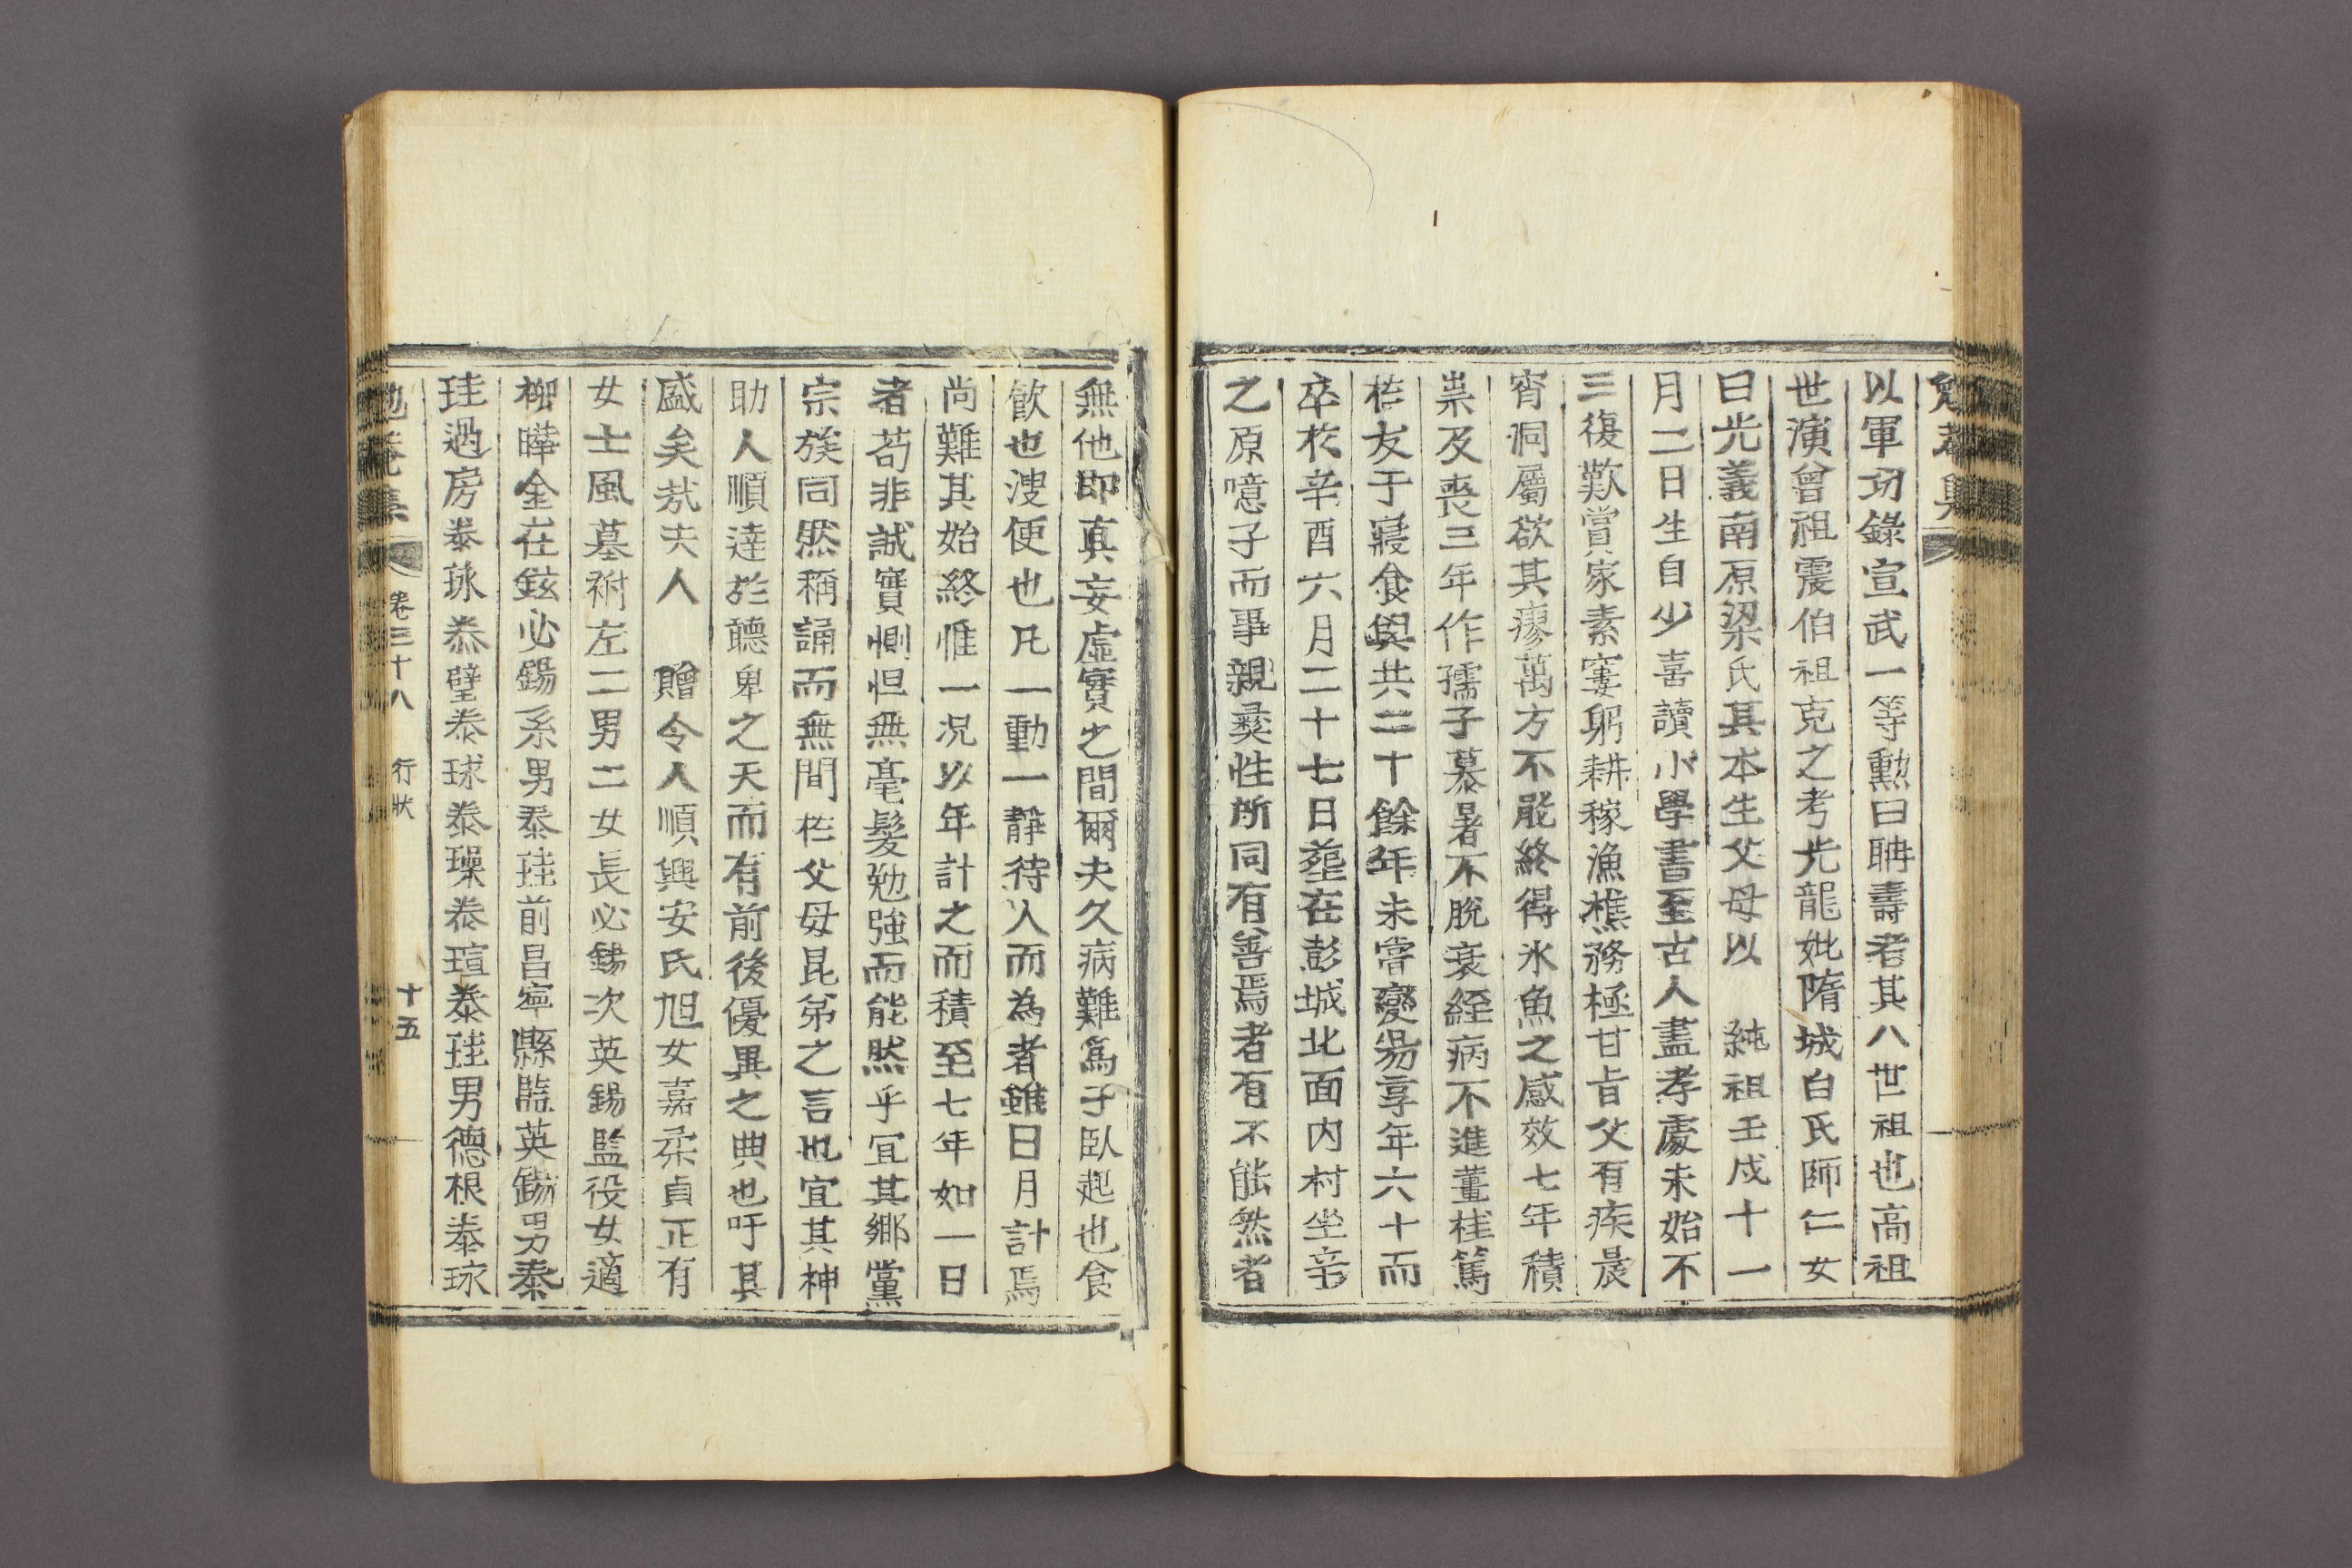 以軍功錄宣武一等勳曰聃壽者其八世祖也高祖
世演曾祖震伯祖克之考光龍妣隋城白氏師仁女
曰光義南原梁氏其本生父母以 純祖壬戌十一
月二日生自少喜讀小學書至古人盡孝處未始不
三復歎賞家素窶躬耕稼漁樵務極甘旨父有疾晨
宵洞屬欲其瘳萬方不能終得氷魚之感效七年積
祟及喪三年作孺子慕暑不脫衰絰病不進薑桂篤
於友于寢食與共二十餘年未嘗變易享年六十而
卒於辛酉六月二十七日葬在彭城北面內村坐辛
之原噫子而事親彛性所同有善焉者有不能然者
無他卽眞妄虛實之間爾夫久病難爲子臥起也食
飮也溲便也凡一動一靜待人而為者雖日月計焉
尚難其始終惟一况以年計之而積至七年如一日
者苟非誠實惻怛無毫髮勉強而能然乎宜其鄕黨
宗族同然稱誦而無間於父母昆弟之言也宜其神
助人順達於聽卑之天而有前後優異之典也吁其
盛矣哉夫人 贈令人順興安氏旭女嘉柔貞正有
女士風墓祔左二男二女長必錫次英錫監役女適
柳曄金在鉉必錫系男泰珪前昌寧縣監英錫男泰
珪過房泰琭泰璧泰球泰璪泰瑄泰珪男德根泰琭
勉菴集 卷三十八 行狀 十五